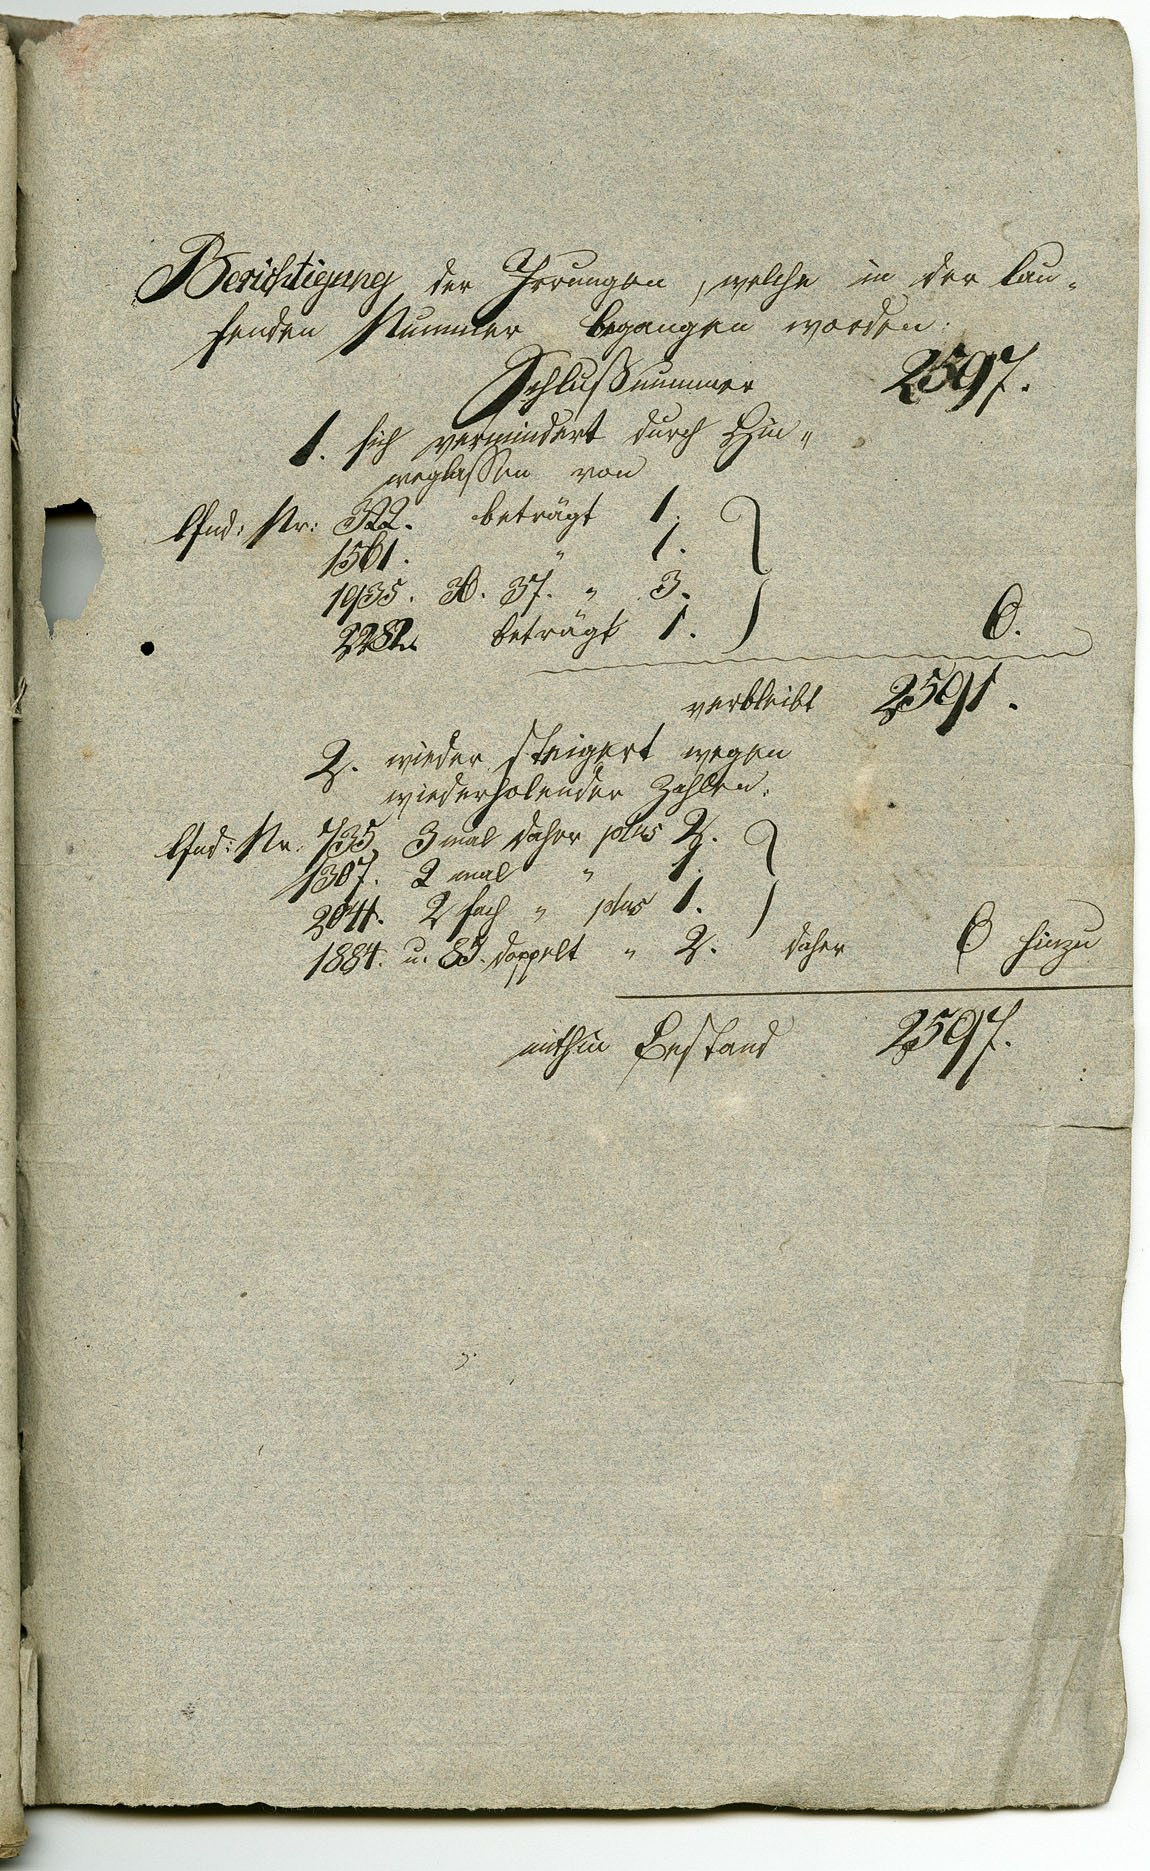 Berichtigung der Irrungen, welche in der lau-
fenden Nummer begangen worden:
Schlußnummer 2597.
1. sich vermindert durch Hin-
weglassen von
lfnd: Nr: 322. beträgt 1.
1561. " 1.
1935. 36. 37. " 3.
2282. beträgt 1. 6.
verbleibt 2591.
2. wieder steigert wegen
wiederholender Zahlen.
lfnd: Nr. 735, 3 mal daher plus 2.
1307. 2 mal " 1.
2044. 2 fach " plus 1.
1884. u. 85. doppelt " 2. daher 6 hinzu
mithin Bestand 2597.